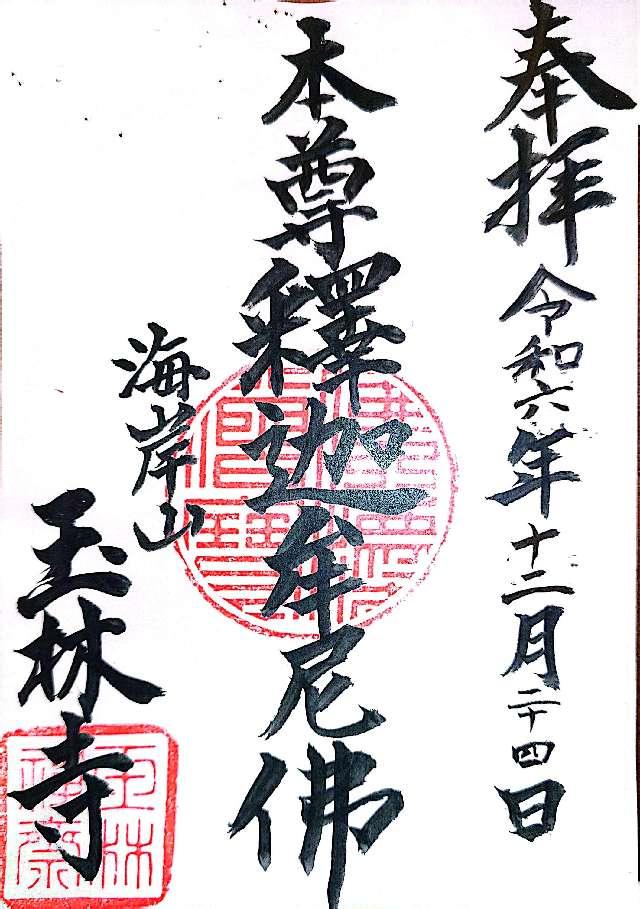 奉拝
令和六年十二月二十四日
本尊釋迦牟尼佛
海岸山
玉林寺